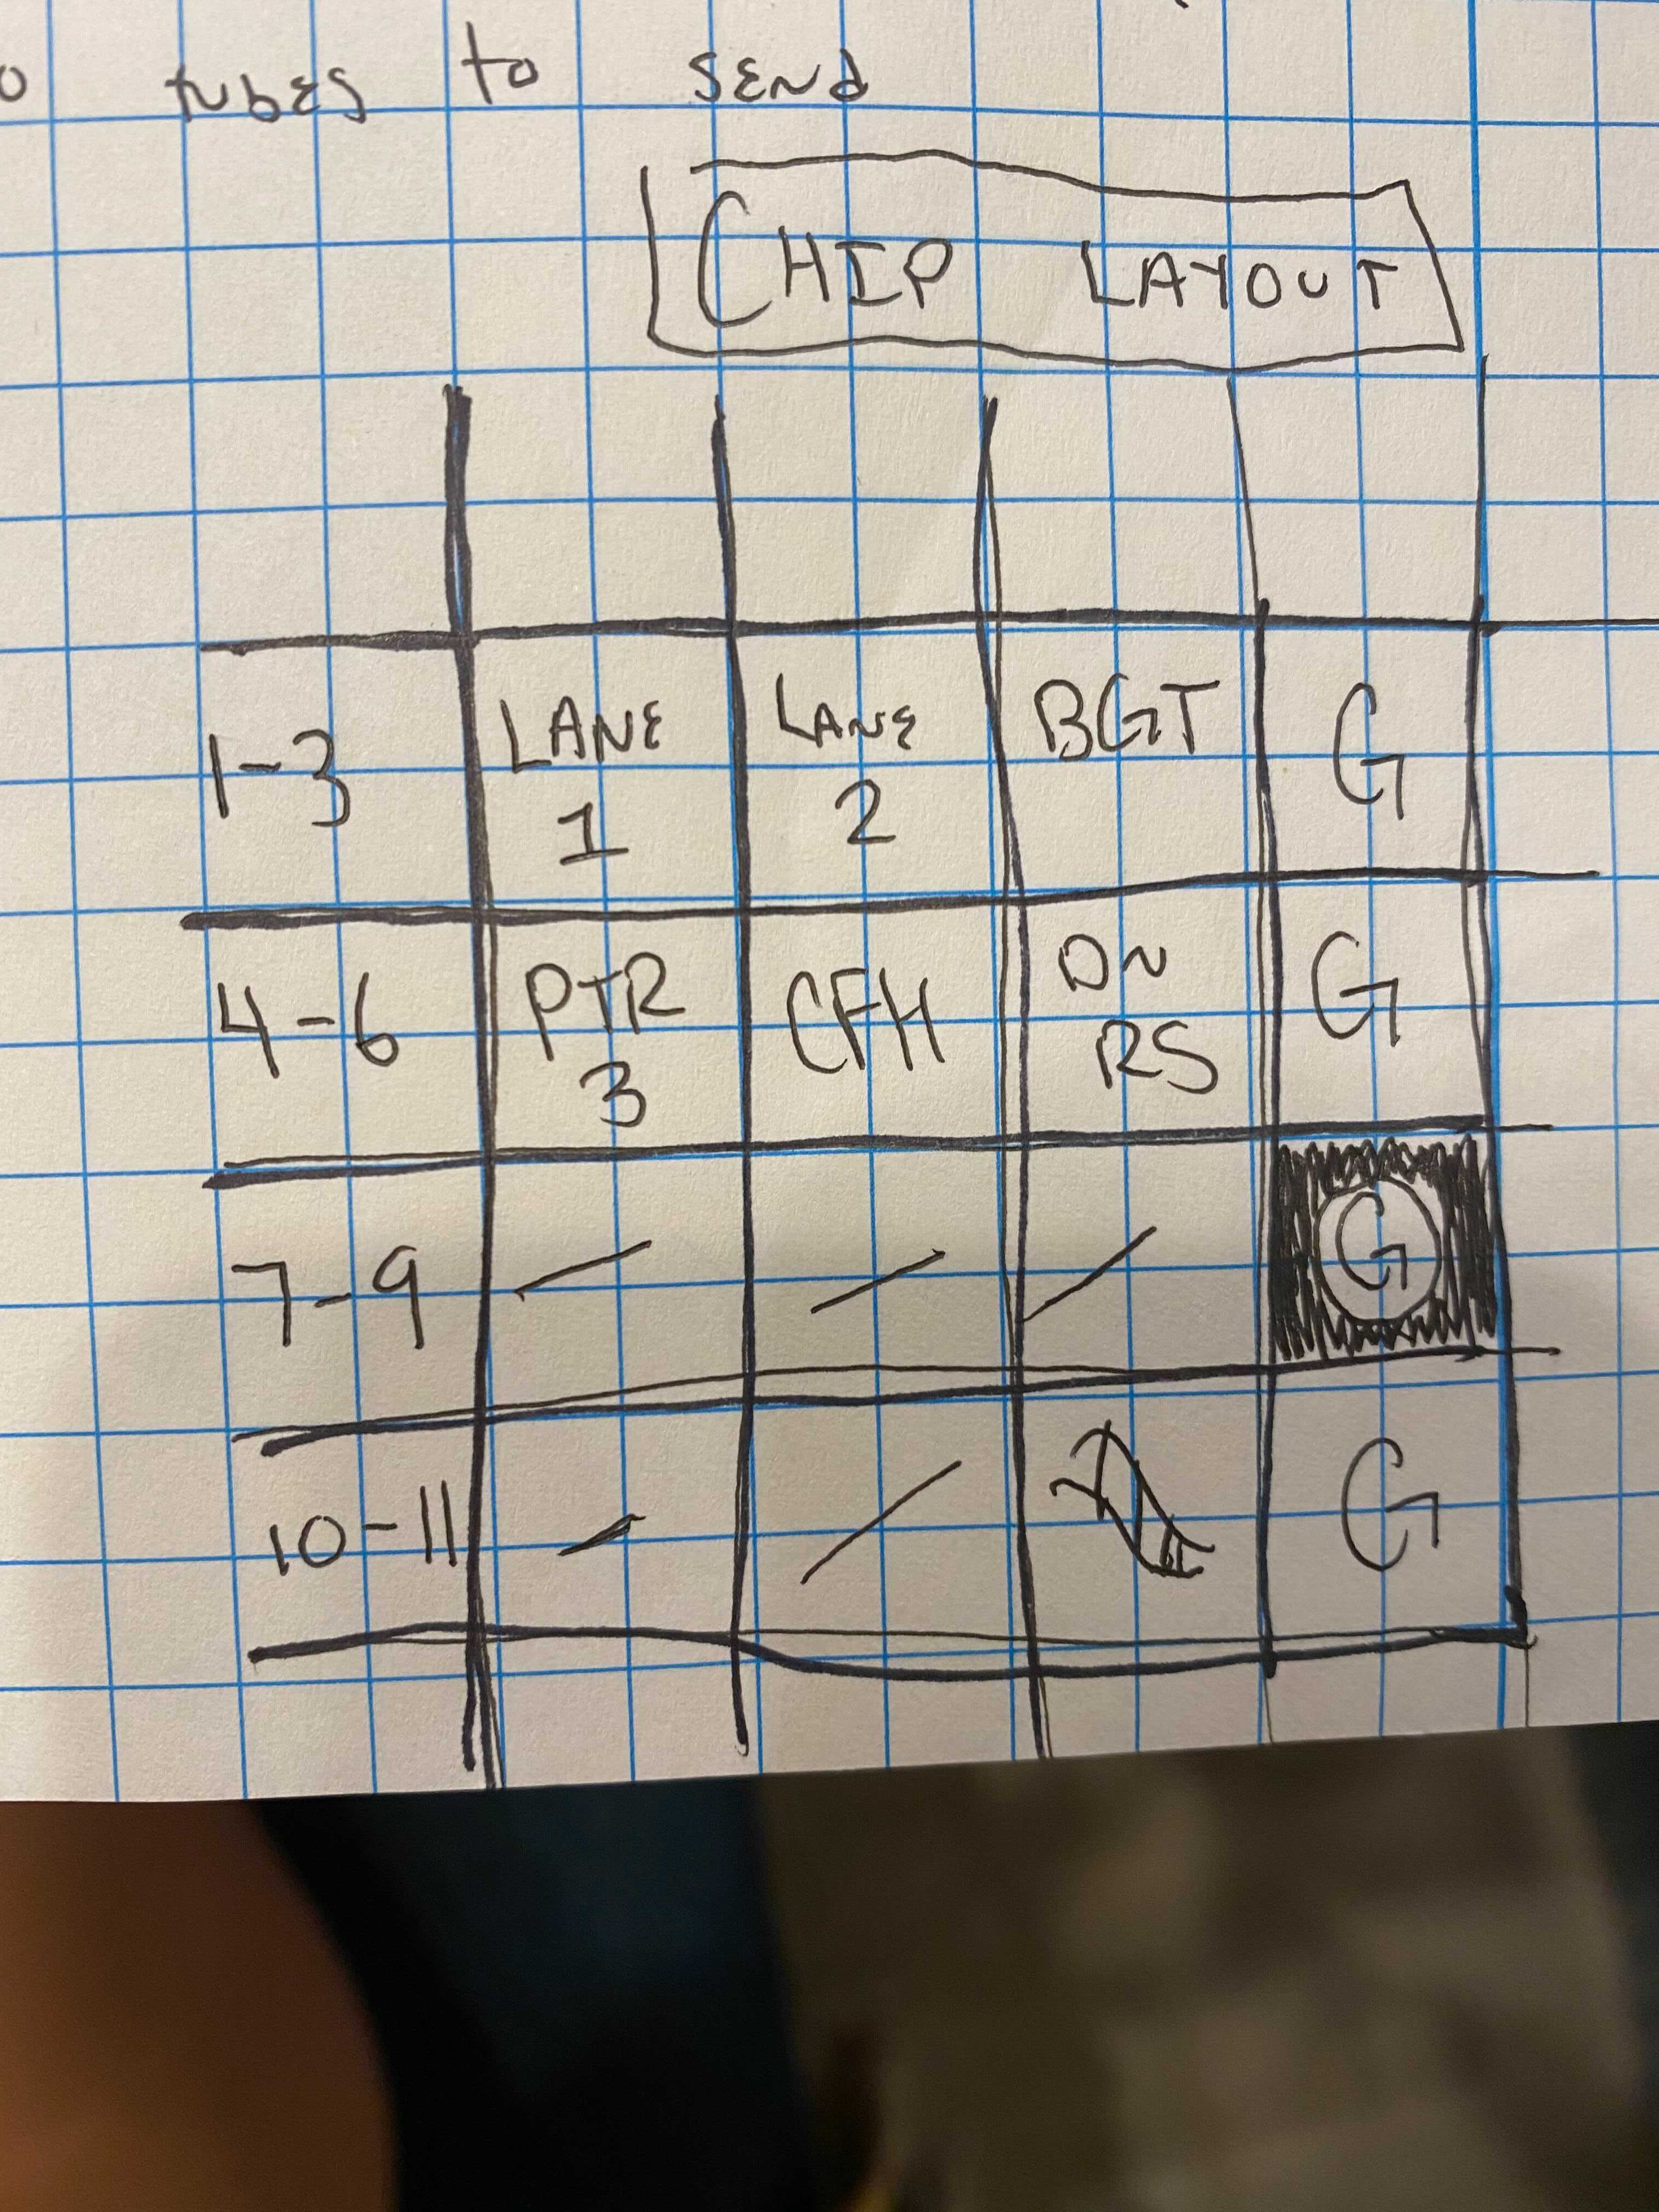 tubes to send
CHIP LAYOUT
1-3 LANE 1 LANE 2 BGT G
4-6 PTR 3 CFH ON RS G
7-9 / / / G
10-11 / / G